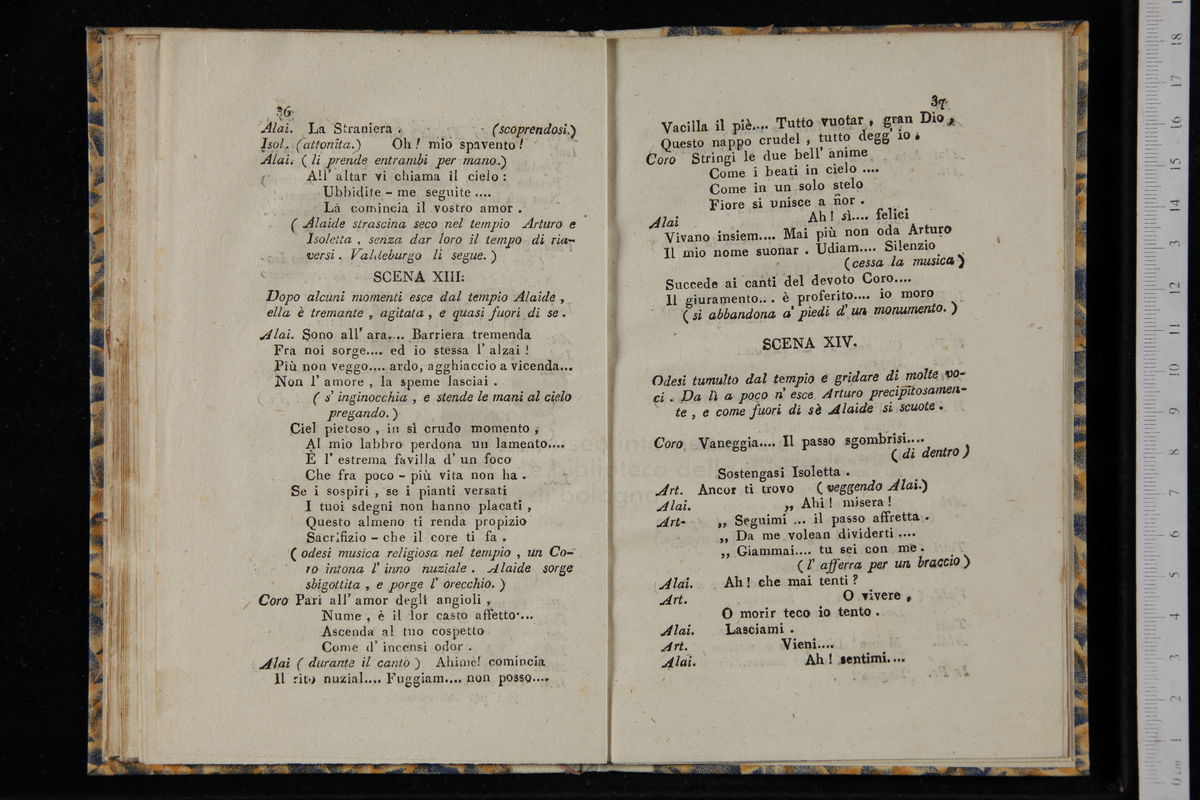 36
Alai. La Straniera . (scoprendosi.)
Isol. (attonita.) Oh! mio spavento!
Alai. ( li prende entrambi per mano.)
All' altar vi chiama il cielo :
Ubbidite - me seguite ....
Là comincia il vostro amor .
( Alaide strascina seco nel tempio Arturo e
Isoletta , senza dar loro il tempo di ria-
versi . Valdeburgo li segue. )
SCENA XIII:
Dopo alcuni momenti esce dal tempio Alaide ,
ella è tremante , agitata , e quasi fuori di se .
Alai. Sono all' ara.... Barriera tremenda
Fra noi sorge.... ed io stessa l' alzai !
Più non veggo.... ardo, agghiaccio a vicenda...
Non l' amore , la speme lasciai .
( s' inginocchia , e stende le mani al cielo
pregando. )
Ciel pietoso , in sì crudo momento ,
Al mio labbro perdona un lamento....
È l' estrema favilla d' un foco
Che fra poco - più vita non ha .
Se i sospiri , se i pianti versati
I tuoi sdegni non hanno placati ,
Questo almeno ti renda propizio
Sacrifizio - che il core ti fa .
( odesi musica religiosa nel tempio , un Co-
ro intona l' inno nuziale . Alaide sorge
sbigottita , e porge l' orecchio. )
Coro Pari all' amor degli angioli ,
Nume , è il lor casto affetto....
Ascenda al tuo cospetto
Come d' incensi odor .
Alai ( durante il canto ) Ahimè! comincia
Il rito nuzial.... Fuggiam.... non posso....
37
Vacilla il piè.... Tutto vuotar , gran Dio ,
Questo nappo crudel , tutto degg' io .
Coro Stringi le due bell' anime
Come i beati in cielo ....
Come in un solo stelo
Fiore si unisce a fior .
Alai Ah! sì.... felici
Vivano insiem.... Mai più non oda Arturo
Il mio nome suonar . Udiam.... Silenzio
(cessa la musica )
Succede ai canti del devoto Coro....
Il giuramento... è proferito.... io moro
( si abbandona a' piedi d' un monumento. )
SCENA XIV.
Odesi tumulto dal tempio e gridare di molte vo-
ci . Da lì a poco n' esce Arturo precipitosamen-
te , e come fuori di sè Alaide si scuote .
Coro Vaneggia.... Il passo sgombrisi....
( di dentro )
Sostengasi Isoletta .
Art. Ancor ti trovo ( veggendo Alai.)
Alai. „ Ahi! misera!
Art- „ Seguimi ... il passo affretta .
„ Da me volean dividerti ....
„ Giammai.... tu sei con me .
( l' afferra per un braccio )
Alai. Ah! che mai tenti ?
Art. O vivere ,
O morir teco io tento .
Alai. Lasciami .
Art. Vieni....
Alai. Ah! sentimi....